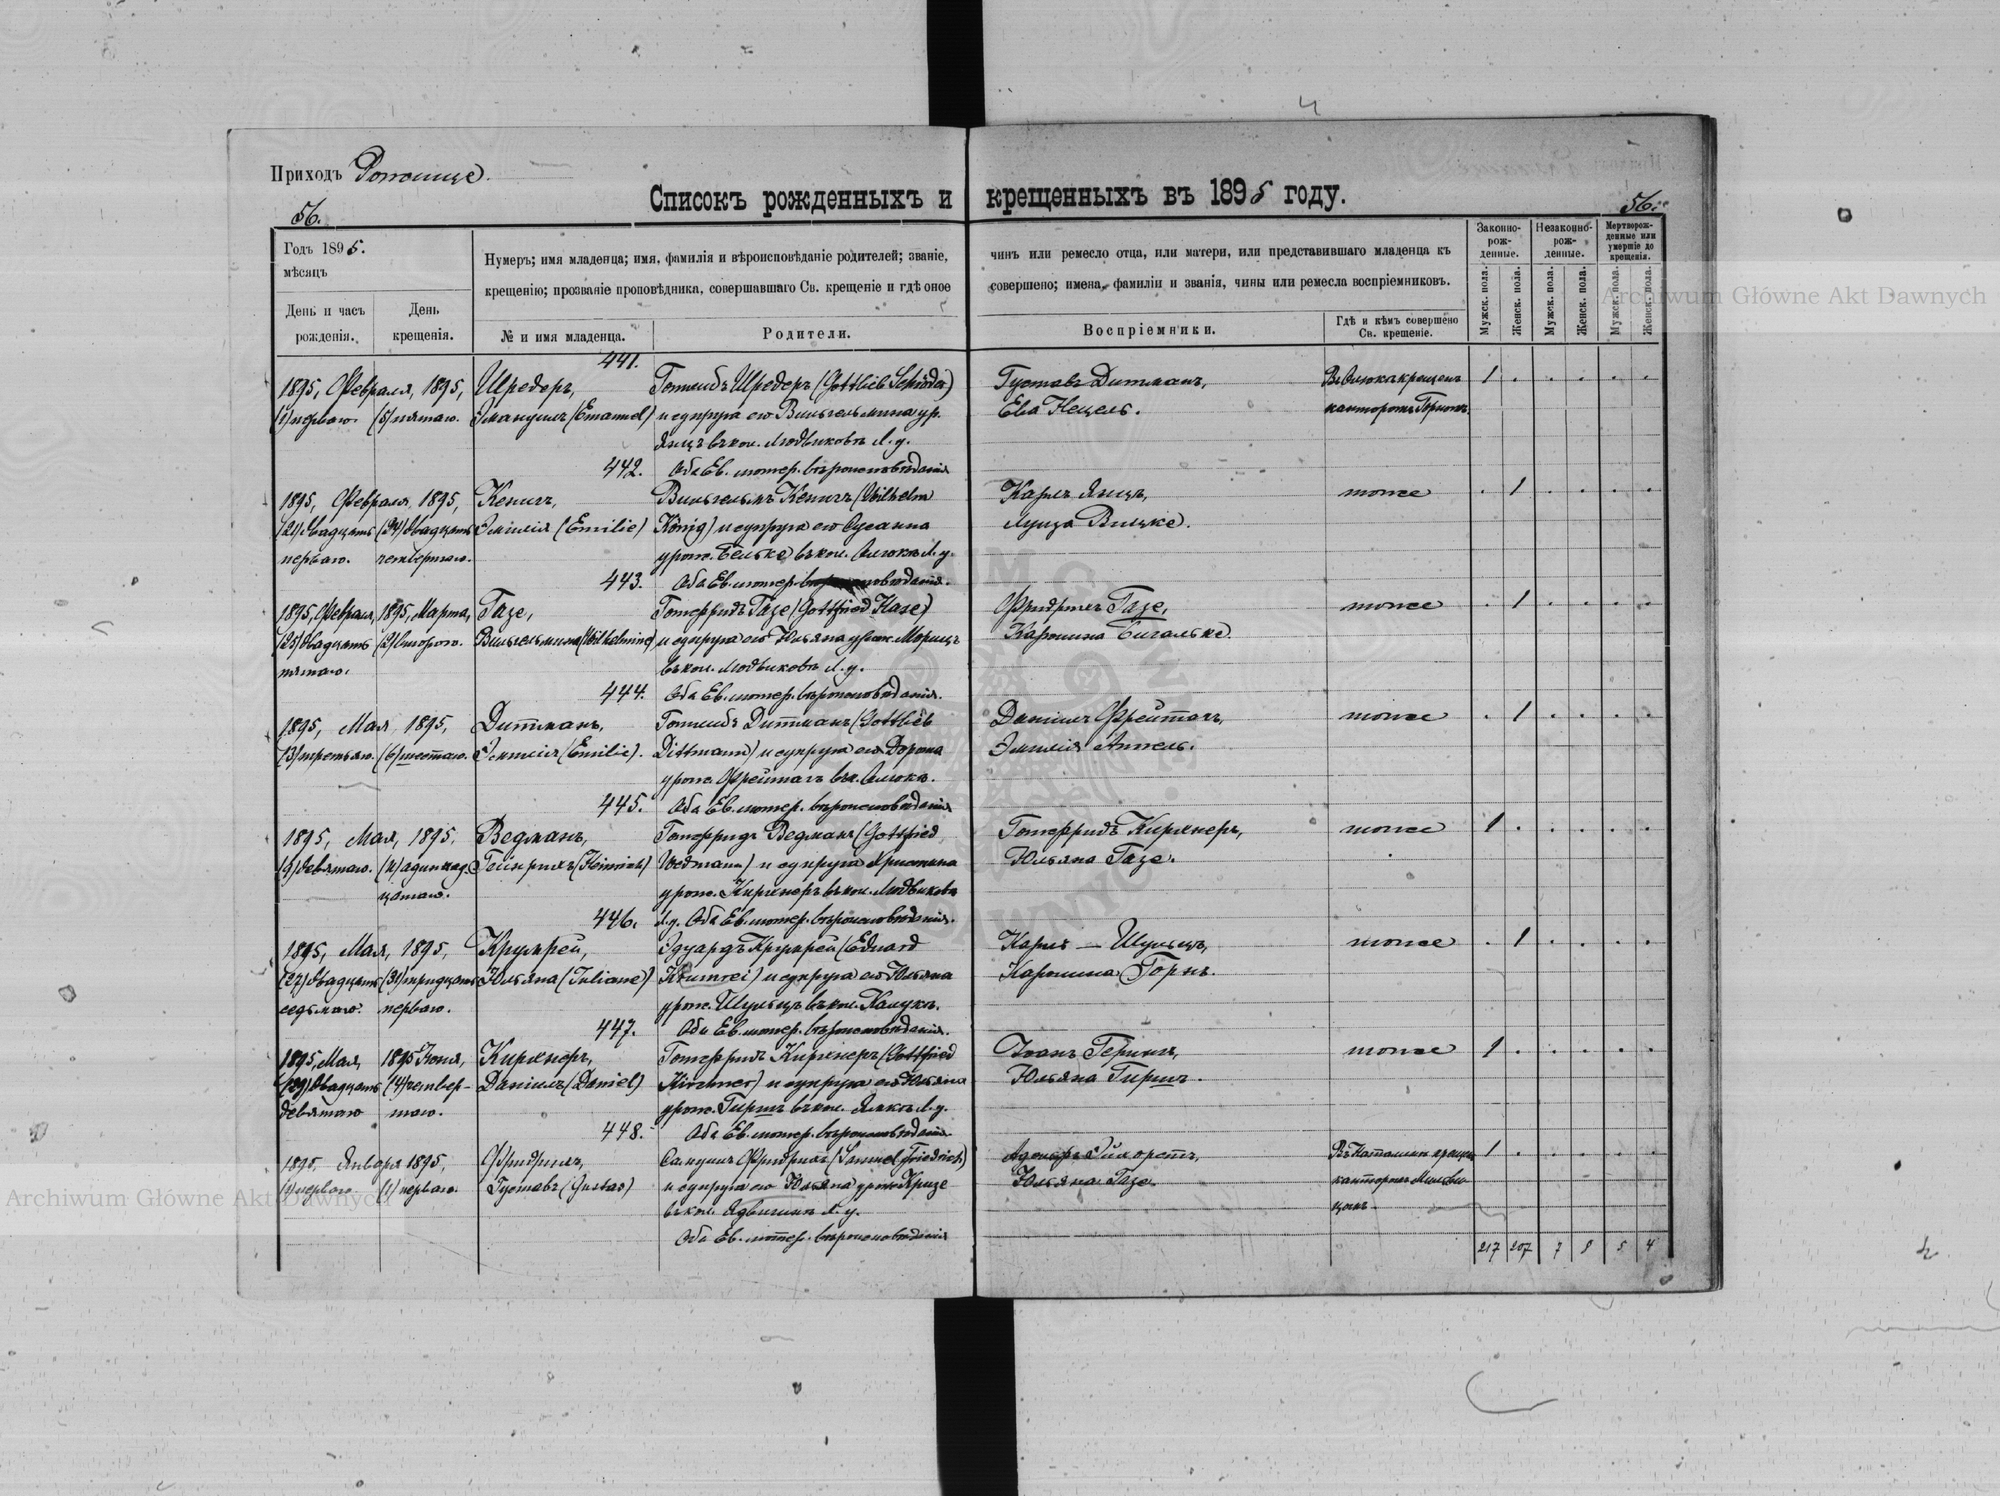 Приходъ Рожище.
Списокъ рожденныхъ и крещенныхъ въ 1895 году.
56.
56.
Годъ 1895.
мѣсяцъ
День и часъ рожденія.
День крещенія.
Нумеръ; имя младенца; имя, фамилія и вѣроисповѣданіе родителей; званіе, чинъ или ремесло отца, или матери, или представившаго младенца къ
крещенію; прозваніе проповѣдника, совершавшаго Св. крещеніе и гдѣ оное совершено; имена, фамиліи и званія, чины или ремесла воспріемниковъ.
№ и имя младенца.
Родители.
Воспріемники.
Гдѣ и кѣмъ совершено Св. крещеніе.
Законно-рож-денные.
Незаконно-рож-денные.
Мертворож-денные или умершіе до крещенія.
Мужск. пола.
Женск. пола.
Мужск. пола.
Женск. пола.
Мужск. пола.
Женск. пола.
441.
1895, Февраля, 1895, Шредеръ, Готлибъ Шредеръ (Gottlieb Schröder) Густавъ Дитманъ, 1
(1) перваго. (5) пятаго. Эмануилъ (Emanuel) и супруга его Вильгельмина ур. Ева Нецель. канторомъ
въ кол. Людвиковъ Л. у.
442. Оба Ев. лютер. вѣроисповѣданія
1895, Февраля, 1895, Кенигъ, Вильгельмъ Кенигъ (Wilhelm Карлъ Янцъ, тоже 1
(21) двадцать (24) двадцать Эмилія (Emilie) König) и супруга его Сусанна Луиза
перваго. четвертаго. урож. Бельке въ кол. Л. у.
443. Оба Ев. лютер. вѣроисповѣданія.
1895, Февраля, 1895, Марта, Газе, Готфридъ Газе (Gottfried Hase) Фридрихъ Газе, тоже 1
(25) двадцать (2) второго. Вильгельмина (Wilhelmine) и супруга его Юльяна урож. Морицъ Каролина
пятаго. въ кол. Людвиковъ Л. у.
444. Оба Ев. лютер. вѣроисповѣданія.
1895, Мая, 1895, Дитманъ, Готлибъ Дитманъ (Gottlieb Даніилъ Фрейтагъ, тоже 1
(3) третьяго. (6) шестаго. Эмилія (Emilie). Dittmann) и супруга его Дорота Эмилія
урож. Фрейтагъ въ к.
445. Оба Ев. лютер. вѣроисповѣданія
1895, Мая, 1895, Ведманъ, Готфридъ Ведманъ (Gottfried Готфридъ Кирхнеръ, тоже 1
(9) девятаго. (11) одиннад- Гейнрихъ (Heinrich) Wedmann) и супруга Христина Юльяна Газе.
цатаго. урож. Кирхнеръ въ кол. Людвиковъ
446. Л. у. Оба Ев. лютер. вѣроисповѣданія.
1895, Мая, 1895, Крумрей, Эдуардъ Крумрей (Eduard Карлъ — Шульцъ, тоже 1
(27) двадцать (31) тридцать Юльяна (Juliane) Krumrei) и супруга его Юльяна Каролина Горнъ.
седьмаго. перваго. урож. Шульцъ въ кол.
447. Оба Ев. лютер. вѣроисповѣданія.
1895, Мая, 1895 Юня, Кирхнеръ, Готфридъ Кирхнеръ (Gottfried тоже 1
(29) двадцать (4) четвер- Даніилъ (Daniel) Kirchner) и супруга его Юльяна Юльяна Гиршъ.
девятаго таго. урож. Гиршъ въ кол. Л. у.
448. Оба Ев. лютер. вѣроисповѣданія
1895, Января 1895, Фридрихъ, Самуилъ Фридрихъ (Samuel Friedrich) 1
(1) перваго (1) перваго. Густавъ (Gustav) и супруга его Юльяна урож. Кризе Юльяна Газе. канторомъ
въ кол. Л. у.
Оба Ев. лютер. вѣроисповѣданія
217 207 7 8 5 4
Archiwum Główne Akt Dawnych
Archiwum Główne Akt Dawnych